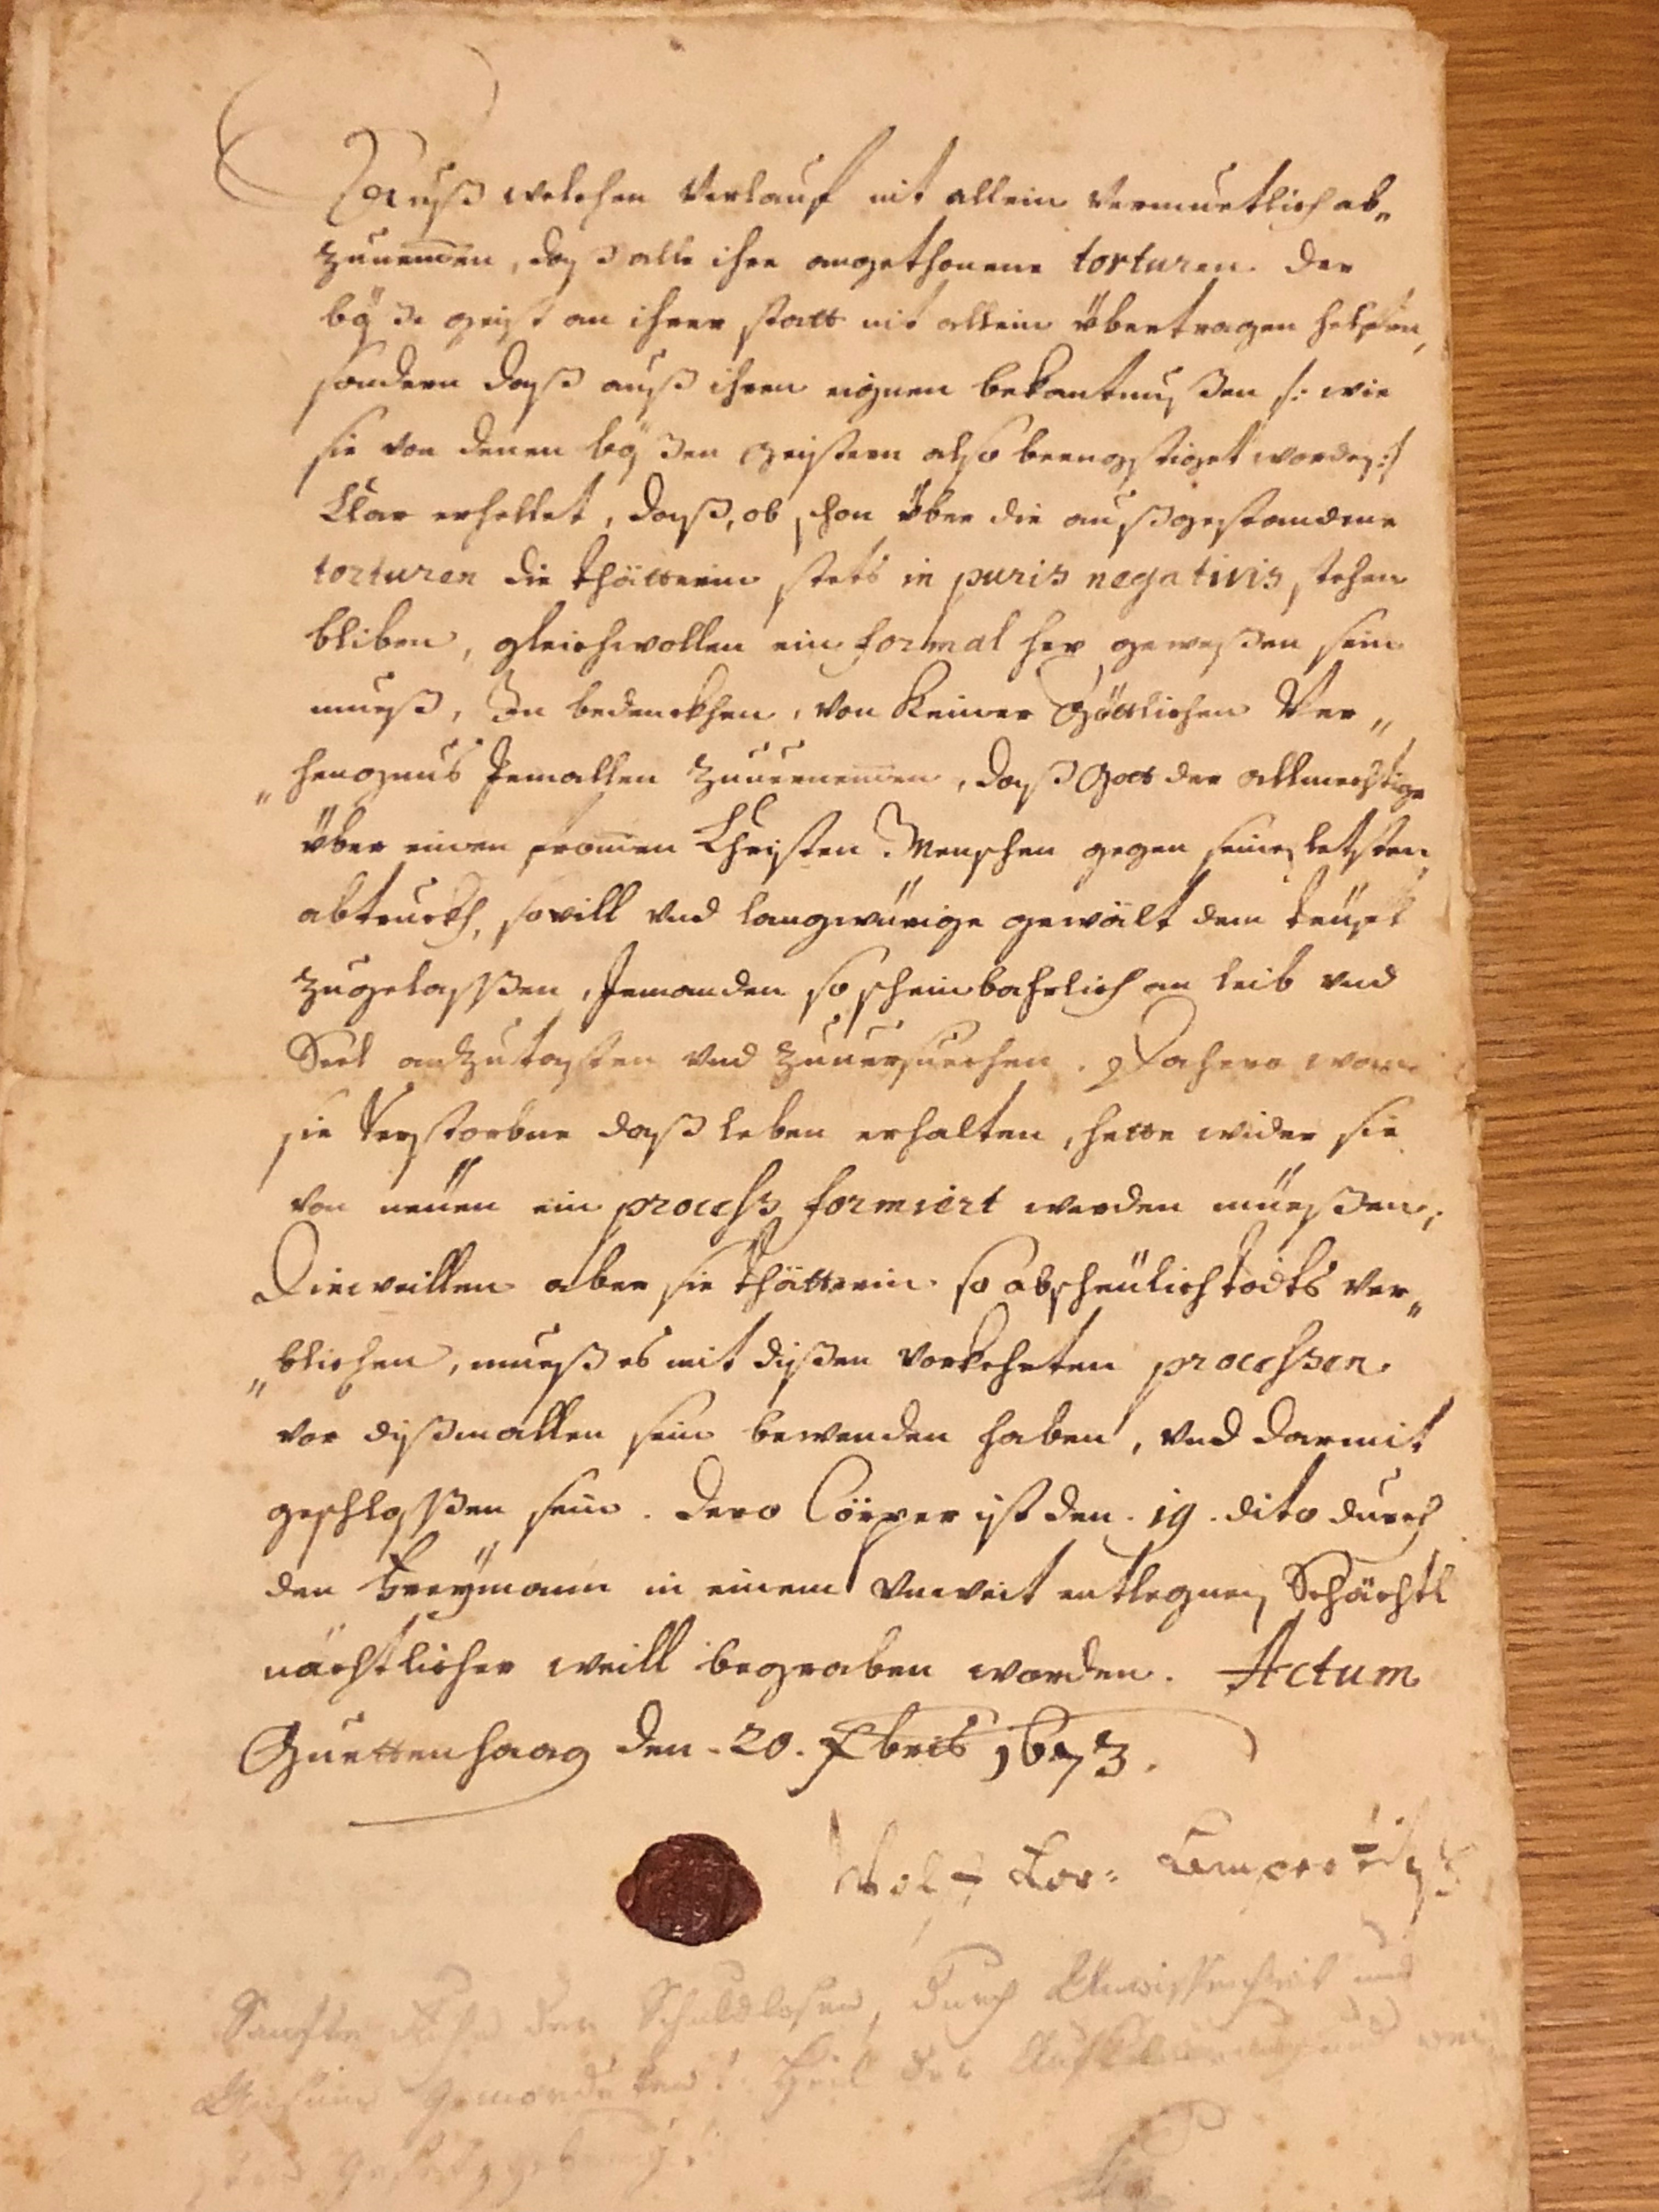 Auß welchen Verlauf nit allein Vermuetlich ab„
zunemen, daß alle ihre angethonene torturen der
böße geist an ihrer statt nit allein übertragen helffen,
sondern daß auß ihren eignen bekantnußen /: wie
sie von denen bößen geistern also beengstiget worden :/
Klar erhellet, daß, ob schon über die außgestandene
torturen die thätterin stets in puris negativis stehen
bliben, gleichwollen ein formal hex geweßen sein
mueß, In bedenckhen, von keiner Göttlichen Ver„
„hengnus Jemallen zuuernemen, daß Gott der allmechtige
über einen fromen Christen Menschen gegen seinen letsten
abtruckh, sovill vnd langwürige gewält dem teüfel
zugelaßßen, Jemanden so scheinbahrlich an leib vnd
Seel anzutasten vnd zuuersuechen. Dahero wan
sie Verstorbne daß leben erhalten, hette wider sie
von neüen ein process formiert werden müeßen,
Dieweillen aber sie thätterin so abscheülich todts ver„
„blichen, mueß es mit dißen vorkehrten processen
vor dißmallen sein bewenden haben, vnd darmit
geschloßßen sein. Dero Cörper ist den 19. dito durch
den freymann in einem vnweit entlegnen Schächtl
nächtlicher weill begraben worden. Actum
Guettenhaag den 20. Febris 1673.
Wolf
Sanfte Ruhe der Schuldlosen, durch Unwissenheit und
Unsinn Gemordeten! Heil der Aufklärung und
Gesetzgebung!